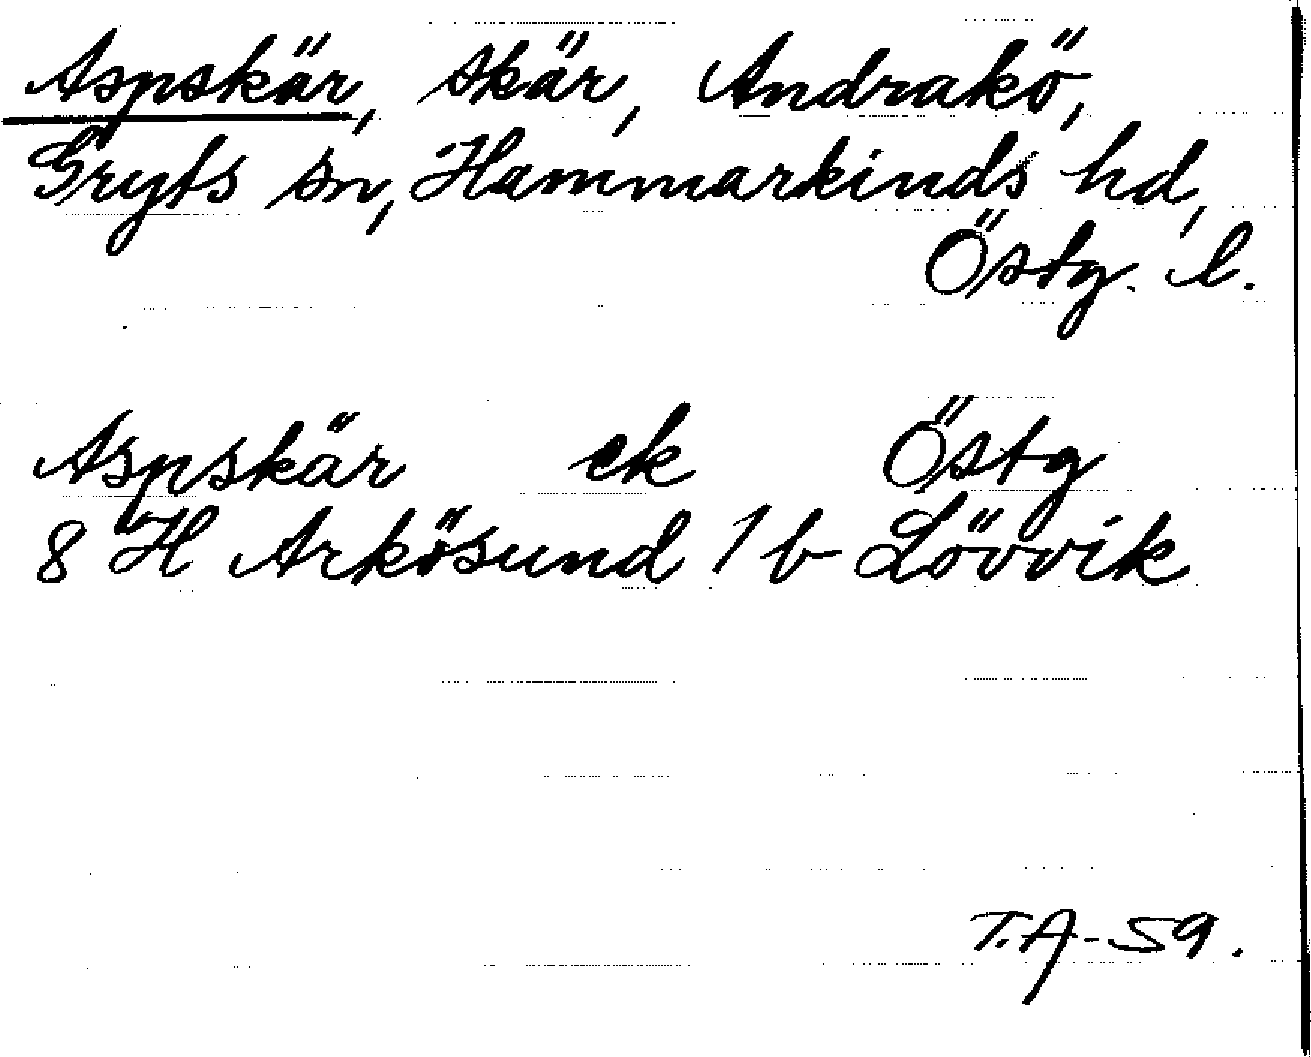 Aspskär, skär, Andrakö,
Gryts sn, Hammarkinds hd,
Östg. l.
Aspskär ek Östg
8 H Arkösund 1 b Lövvik
T.A-59.